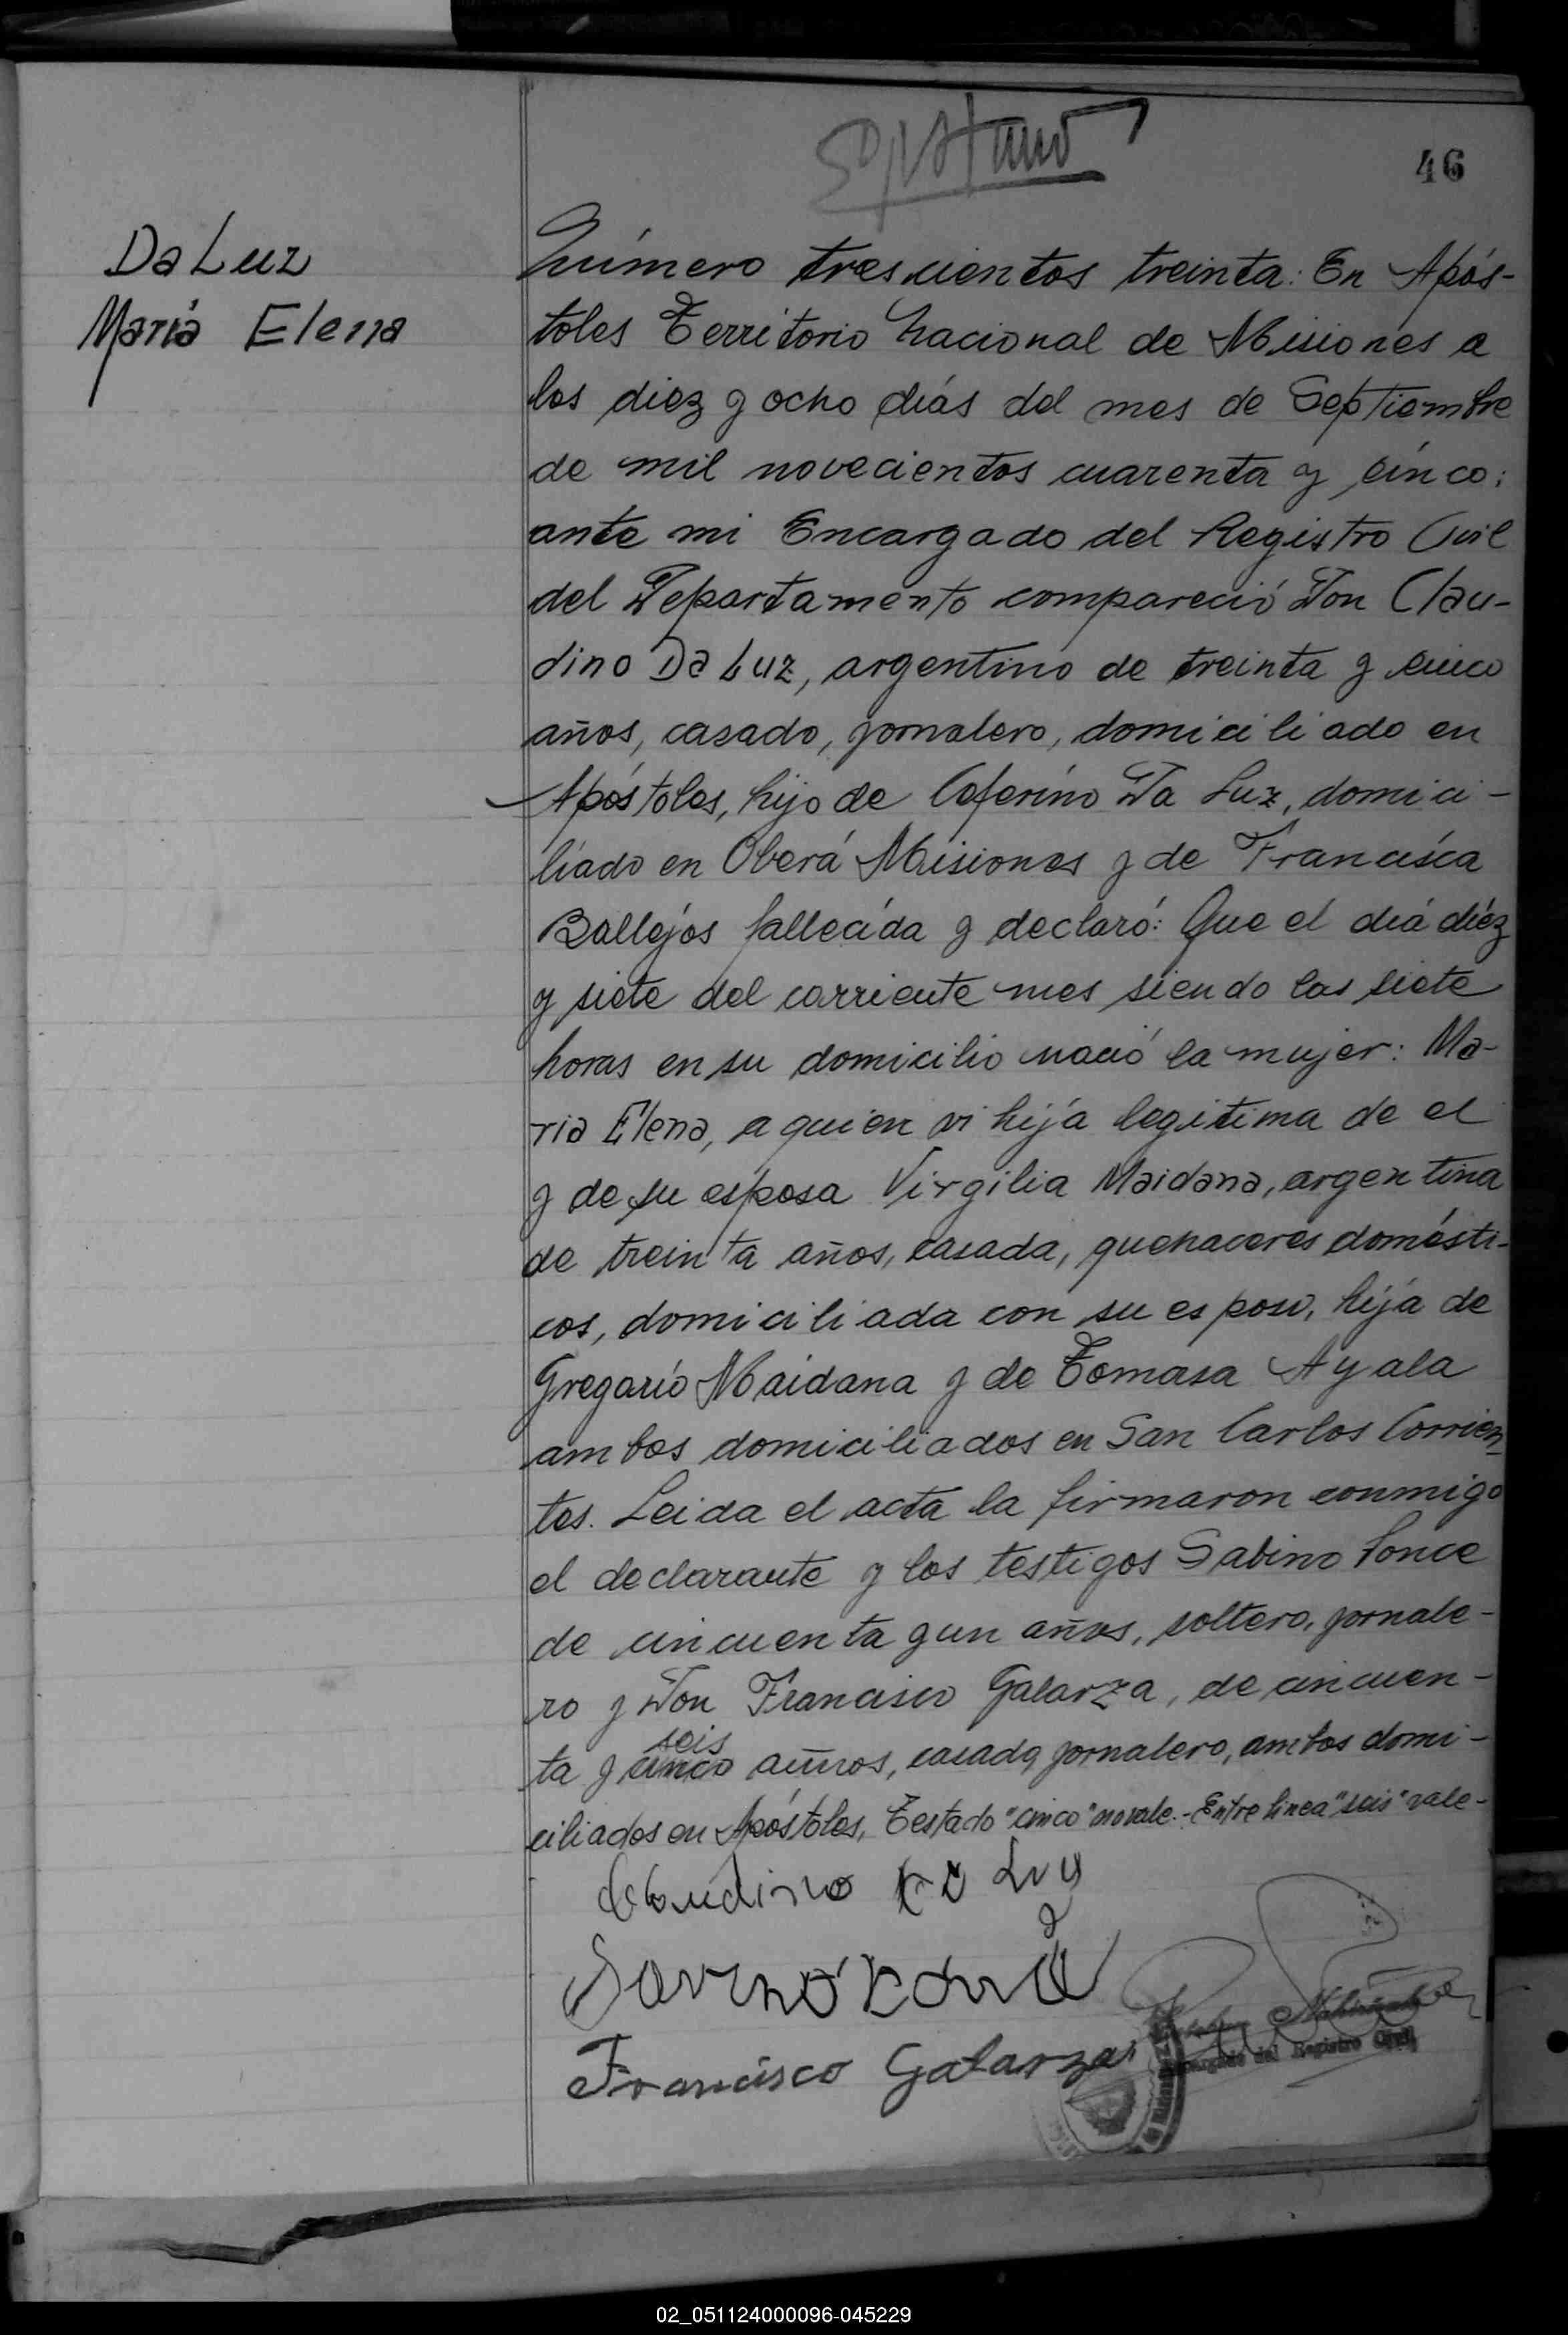 46
Da Luz
María Elena
Número trescientos treinta: En Após-
toles Territorio Nacional de Misiones a
los diez y ocho días del mes de Septiembre
de mil novecientos cuarenta y cinco;
ante mi Encargado del Registro Civil
del Departamento compareció Don Clau-
dino Da Luz, argentino de treinta y cinco
años, casado, jornalero, domiciliado en
Apóstoles, hijo de Ceferino Da Luz, domici-
liado en Oberá Misiones y de Francisca
Ballejos fallecida y declaró: Que el día diéz
y siete del corriente mes siendo las siete
horas en su domicilio nació la mujer: Ma-
ria Elena, a quien vi hija legitima de el
y de su esposa Virgilia Maidana, argentina
de treinta años, casada, quehaceres domésti-
cos, domiciliada con su esposo, hija de
Gregorio Maidana y de Tomasa Ayala
ambos domiciliados en San Carlos Corrien-
tes. Leida el acta la firmaron conmigo
el declarante y los testigos Sabino Ponce
de cincuenta y un años, soltero, jornale-
ro y Don Francisco Galarza, de cincuen-
seis
ta y cinco años, casado, jornalero, ambos domi-
ciliados en Apóstoles, Testado "cinco" no vale.- Entre linea "seis" vale-
Claudino da Luz
Francisco Galarza
Encargado del Registro Civil
02_051124000096-045229